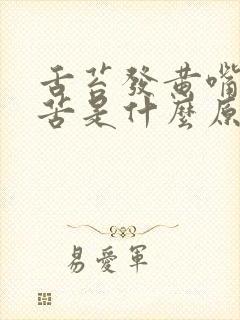 舌苔發黄嘴
苦是什麼原
易愛軍